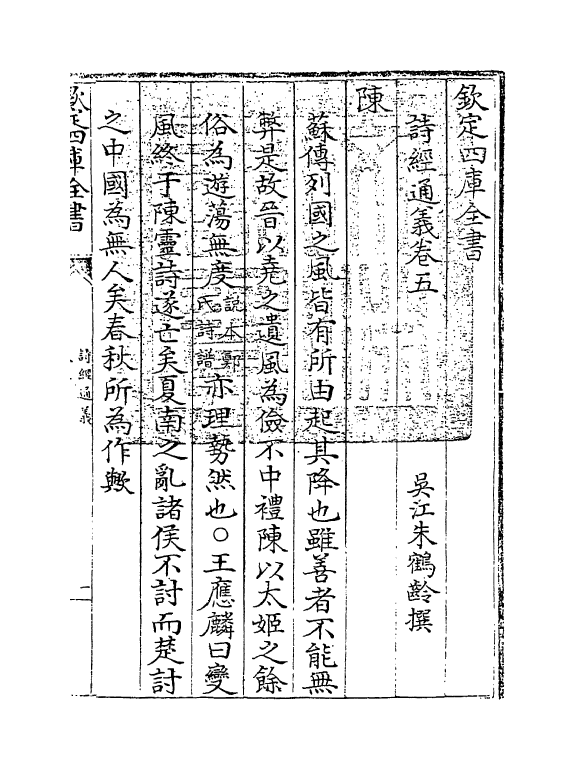 欽定四庫全書
詩經通義卷五
吳江朱鶴齡撰
陳
蘇傳列國之風皆有所由起其降也雖善者不能無
弊是故晉以堯之遺風為儉不中禮陳以太姬之餘
俗為遊蕩無度說本鄭氏詩譜亦理勢然也○王應麟曰變
風終于陳靈詩遂亡矣夏南之亂諸侯不討而楚討
之中國為無人矣春秋所為作歟
欽定四庫全書
詩經通義
一